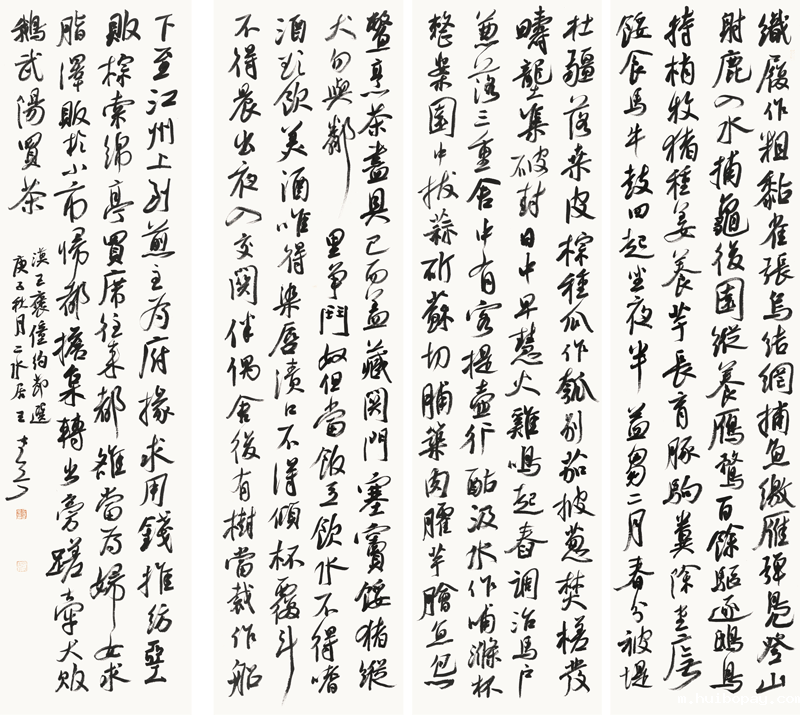 織履作粗黏雀張烏結網捕魚繳雁彈鳧登山
射鹿入水捕龜後園縱養雁鶩百餘驅逐鴟鳥
持梢牧豬種姜養芋長育豚駒糞除堂廡
餧食馬牛鼓四起坐夜半益芻二月春分被堤
杜疆落桑皮棕種瓜作瓠別茄披蔥焚槎發
疇壟集破封日中早慧火雞鳴起舂調治馬戶
兼落三重舍中有客提壺行酤汲水作哺滌杯
整案園中拔蒜斫蘇切脯築肉臛芋膾魚炰
鱉烹茶盡具已而蓋藏關門塞竇餧豬縱
犬勿與鄰里爭鬥奴但當飯豆飲水不得嗜
酒欲飲美酒唯得染唇漬口不得傾杯覆斗
不得晨出夜入交關伴偶舍後有樹當裁作船
下至江州上到煎主為府掾求用錢推紡堊
販棕索綿亭買席往來都雒當為婦女求
脂澤販於小市歸都擔枲轉出旁蹉牽犬販
鵝武陽買茶
漢王褒僮約節選
庚子秋月二水居王